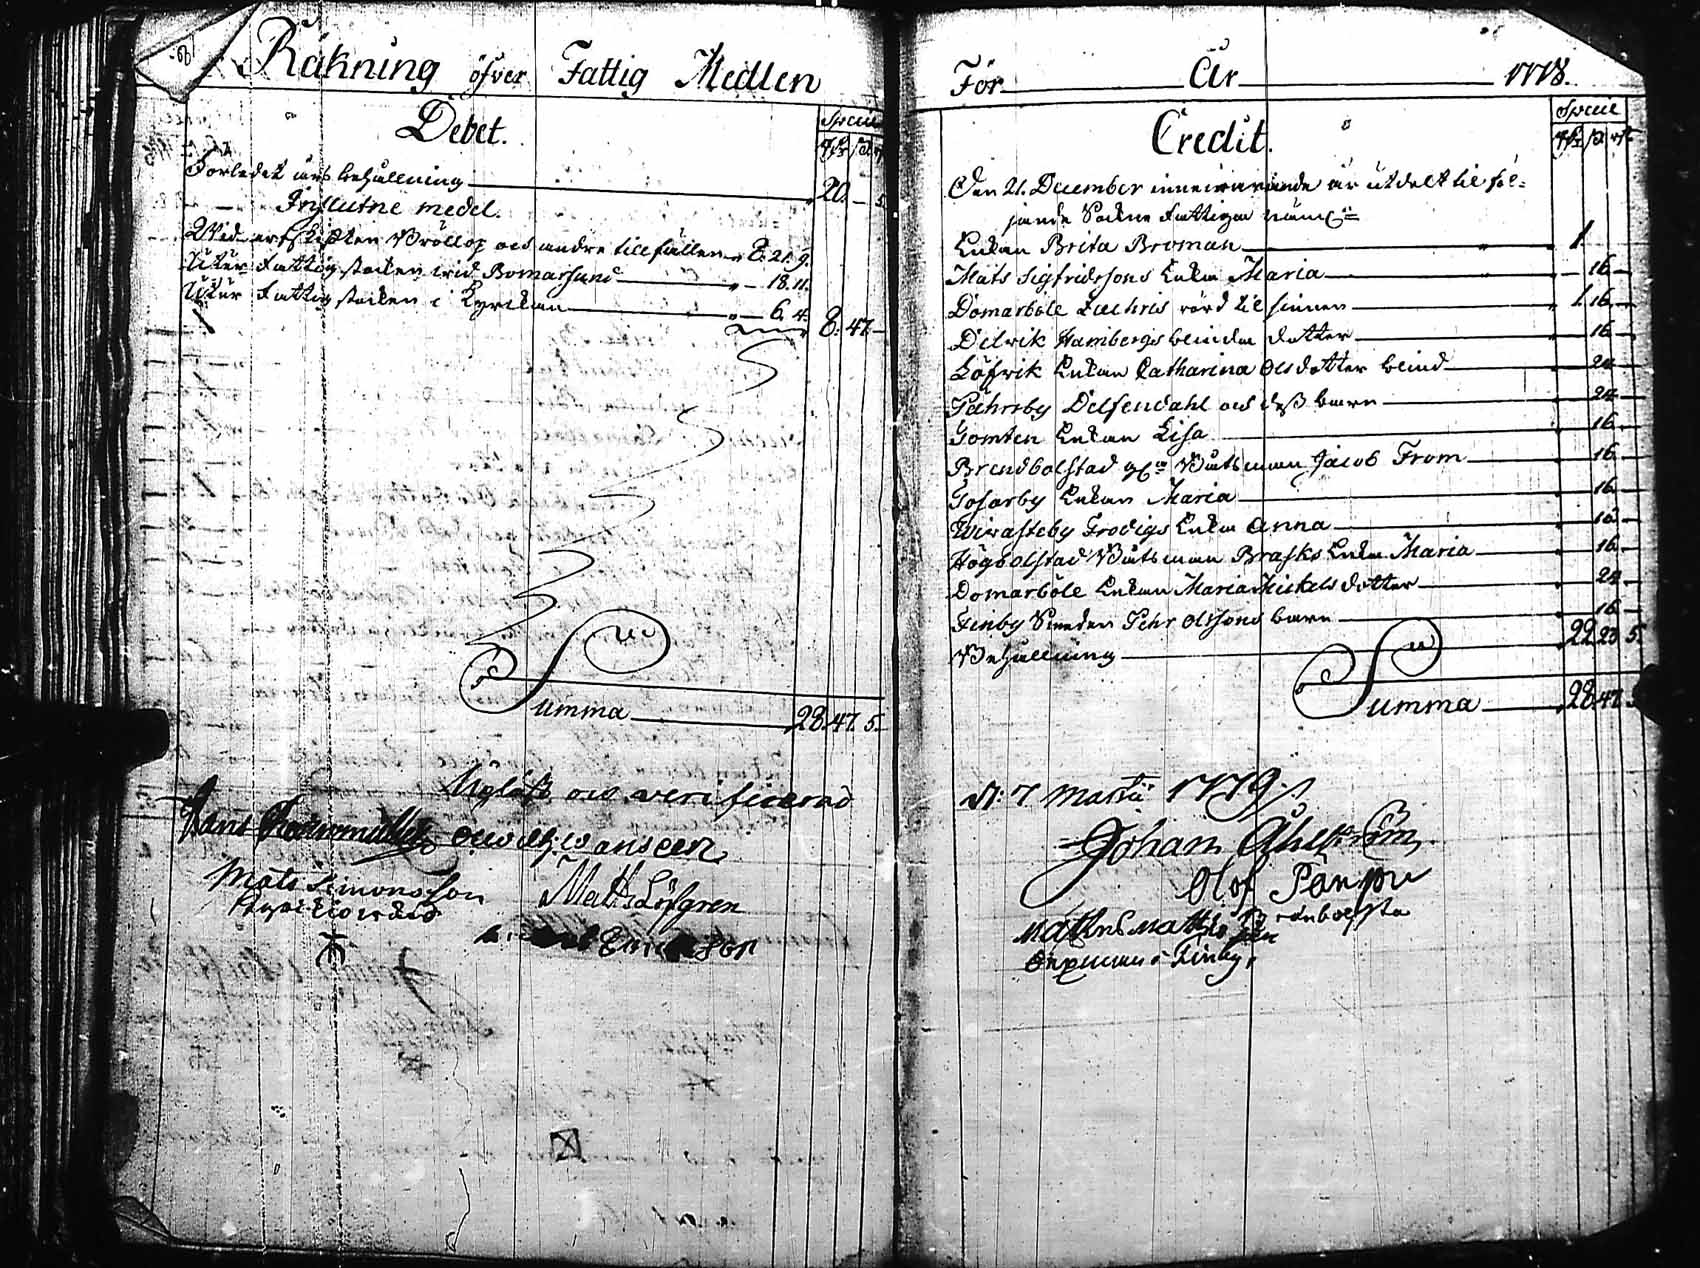 Räkning öfver Fattig Medlen
Debet.
Specie
Förledet års behållning 20. — 5.
Influtne medel.
Wid arfskiften Bröllop och andre tillfällen 8. 21. 9.
Utur Fattigstocken wid Bomarsund — 18. 11.
Utur Fattigstocken i Kyrckan — 6. 4. 8. 47.
Summa 28. 47. 5.
Upläst och verificerad
Mats Simonsson Matts Löfgren
Kyrckiowärd
För År 1778.
Credit.
Specie
Den 21. December innewarande år utdelt til föl=
jande Sockne Fattiga näml:n
Enkan Brita Broman 1.
Mats Sigfridssons Enka Maria 16
Domarböle Zachris rörd til sinnen 1. 16
Delvik Hambergs blinda dotter 16
Löfvik Enkan Catharina Olsdotter blind 24
Påhrsby Delfendahl och dess barn 24
Tomten Enkan Lisa 16
Brendbolstad Båtsman Jacob From 16
Gosarby Enkan Maria 16
Wivasteby Frodigs Enka Anna 16
Högbolstad Båtsman Brasks Enka Maria 16
Domarböle Enkan Maria Mickelsdotter 24
Finby Smeden Pehr Olssons barn 16
Behållning 22 23 5.
Summa 28. 47. 5
d: 7 Martii 1779.
Johan Ahlström
Olof
i Finby.